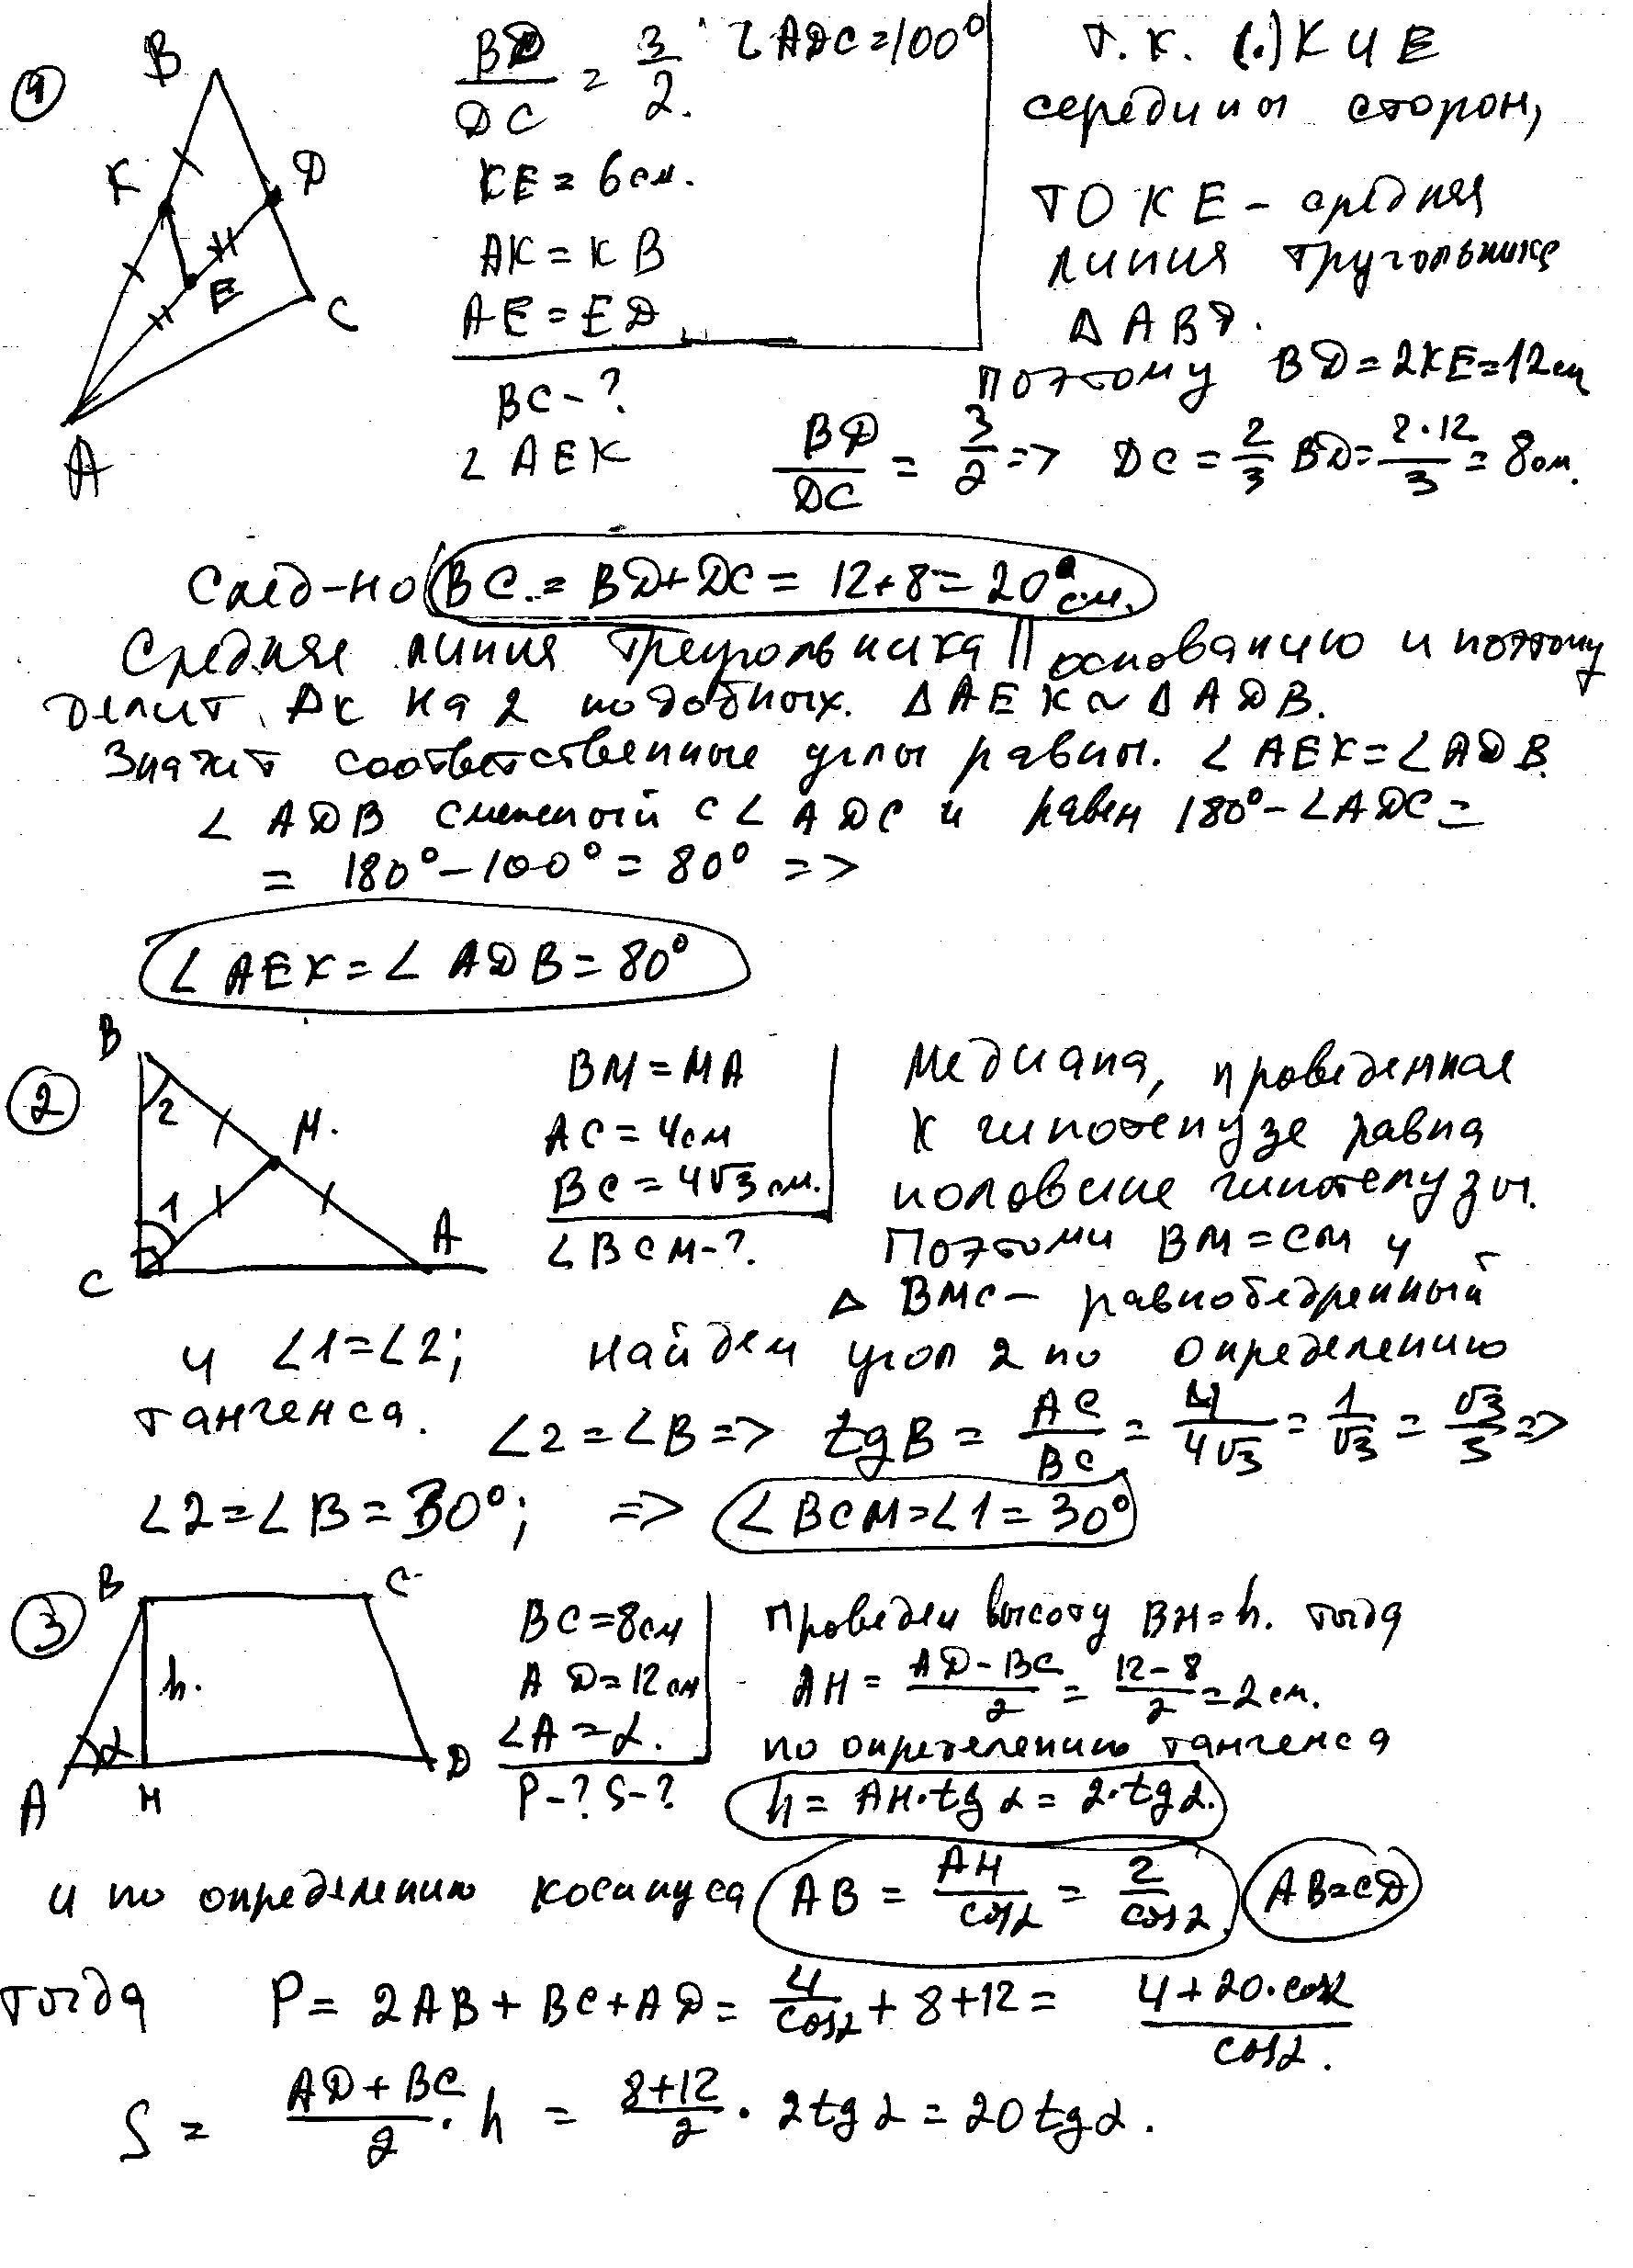 1
B
K
D
E
C
A
BD/DC = 3/2. ∠ADC=100°
KE = 6см.
AK = KB
AE = ED
BC - ?
∠AEK
т.к. (.) K и E
середины сторон,
то KE - средняя
линия тругольника
Δ ABD.
Поэтому BD=2KE=12см
BD/DC = 3/2 => DC = 2/3 BD = 2·12/3 = 8см.
След-но BC = BD+DC = 12+8 = 20 см.
Средняя линия треугольника || основанию и поэтому
делит Δк на 2 подобных. ΔAEK ~ ΔADB.
Значит соответственные углы равны. ∠AEK=∠ADB.
∠ADB смежный с ∠ADC и равен 180°-∠ADC =
= 180°-100° = 80° =>
∠AEK = ∠ADB = 80°
2
B
2
M.
1
A
C
BM = MA
AC = 4см
BC = 4√3 см.
∠BCM-?
Медиана, проведенная
к гипотенузе равна
половине гипотенузы.
Поэтому BM = CM и
Δ BMC - равнобедренный
и ∠1=∠2; найдем угол 2 по определению
тангенса. ∠2=∠B => tgB = AC/BC = 4/4√3 = 1/√3 = √3/3 =>
∠2=∠B = 30°; => ∠BCM=∠1=30°
3
B
C
h.
α
A
H
D
BC=8см
AD=12см
∠A=α.
P-? S-?
Проведем высоту BH=h. тогда
AH = AD-BC/2 = 12-8/2 = 2см.
по определению тангенса
h = AH·tgα = 2·tgα.
и по определению косинуса AB = AH/cosα = 2/cosα. AB=CD
тогда P = 2AB+BC+AD = 4/cosα + 8+12 = 4+20·cosα/cosα.
S = AD+BC/2 · h = 8+12/2 · 2tgα = 20tgα.